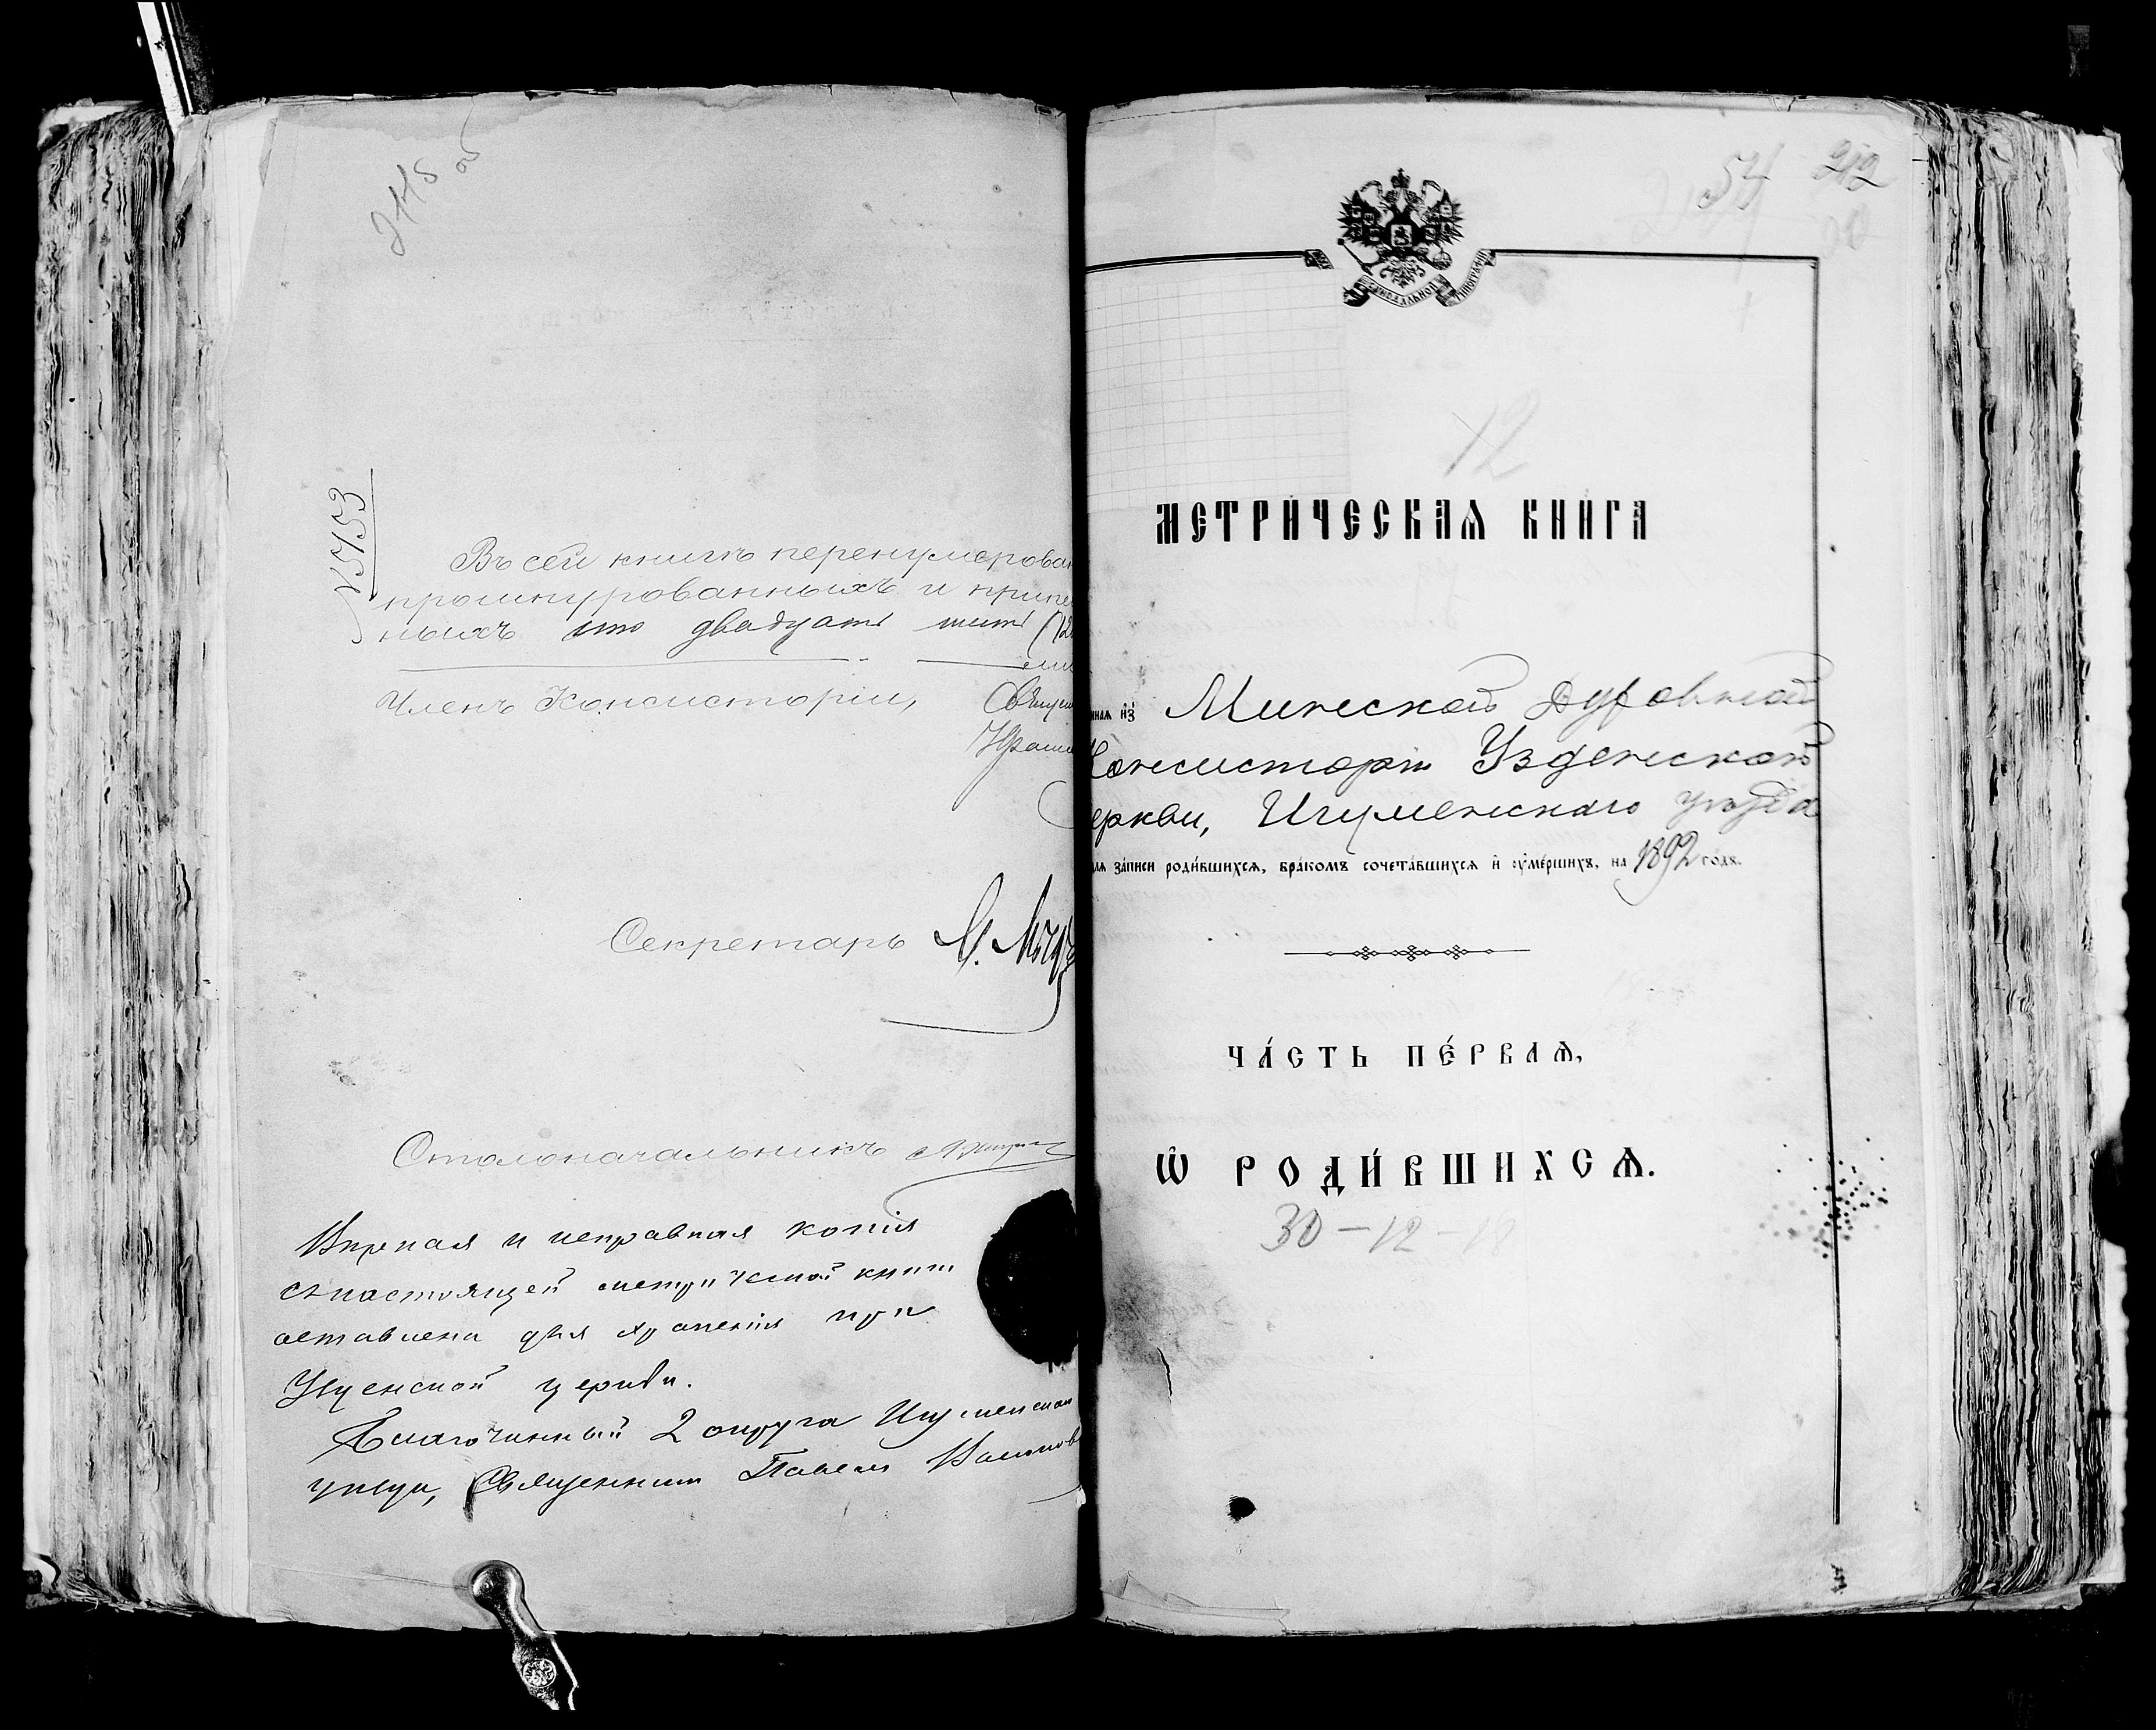 № 5753
Въ сей книгѣ перенумерован
прошнурованныхъ и припе
ныхъ сто двадцать шесть (12
Членъ Консисторіи, Священ
Секретарь
Столоначальникъ
Вѣрная и исправная копія
съ настоящей метрической книги
оставлена для храненія при
Узденской церкви.
Благочинный 2 округа Игуменскаго
уѣзда, Священникъ Павелъ
54 212
СѴНОДАЛЬНОЙ ТИПОГРАФІИ
12
МЕТРИЧЕСКАѦ КНИГА
ннаѧ из̾ Минской Духовной
Консисторіи Узденской
еркви, Игуменскаго уѣзда
для за́писи роди́вшихсѧ, бра́комъ сочета́вшихсѧ и҆ ᲂу҆ме́ршихъ, на 1892 го́дъ.
ЧА́СТЬ ПЕ́РВАѦ,
Ѡ҆ РОДИ́ВШИХСѦ.
30-12-18